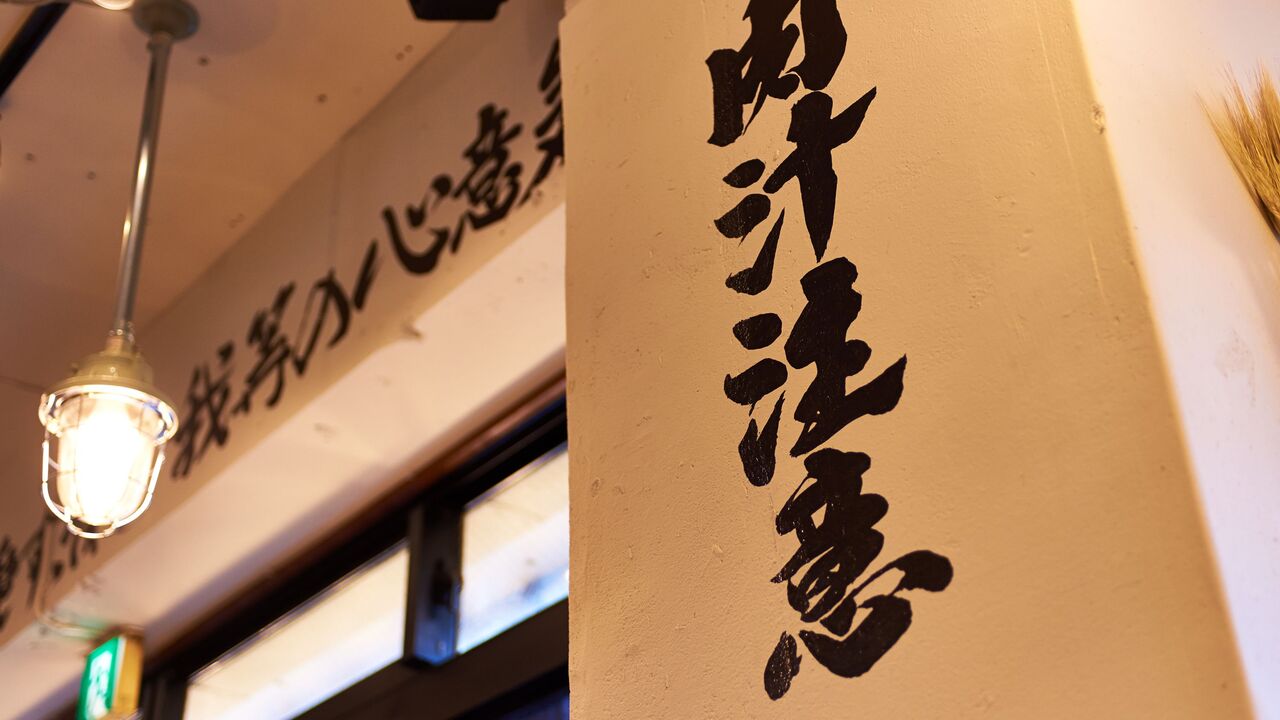 肉汁注意
我等の心意気